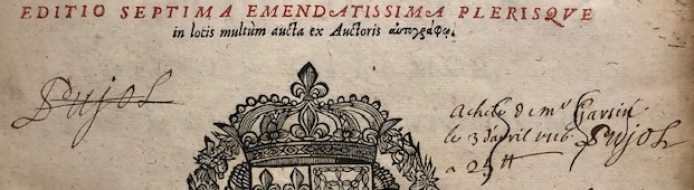 EDITIO SEPTIMA EMENDATISSIMA PLERISQVE
in locis multùm aucta ex Auctoris αὐτογράφῳ.
Pujol
Achete de mr Garsin
le 3 d'avril 1716 Pujol
a 25 tt